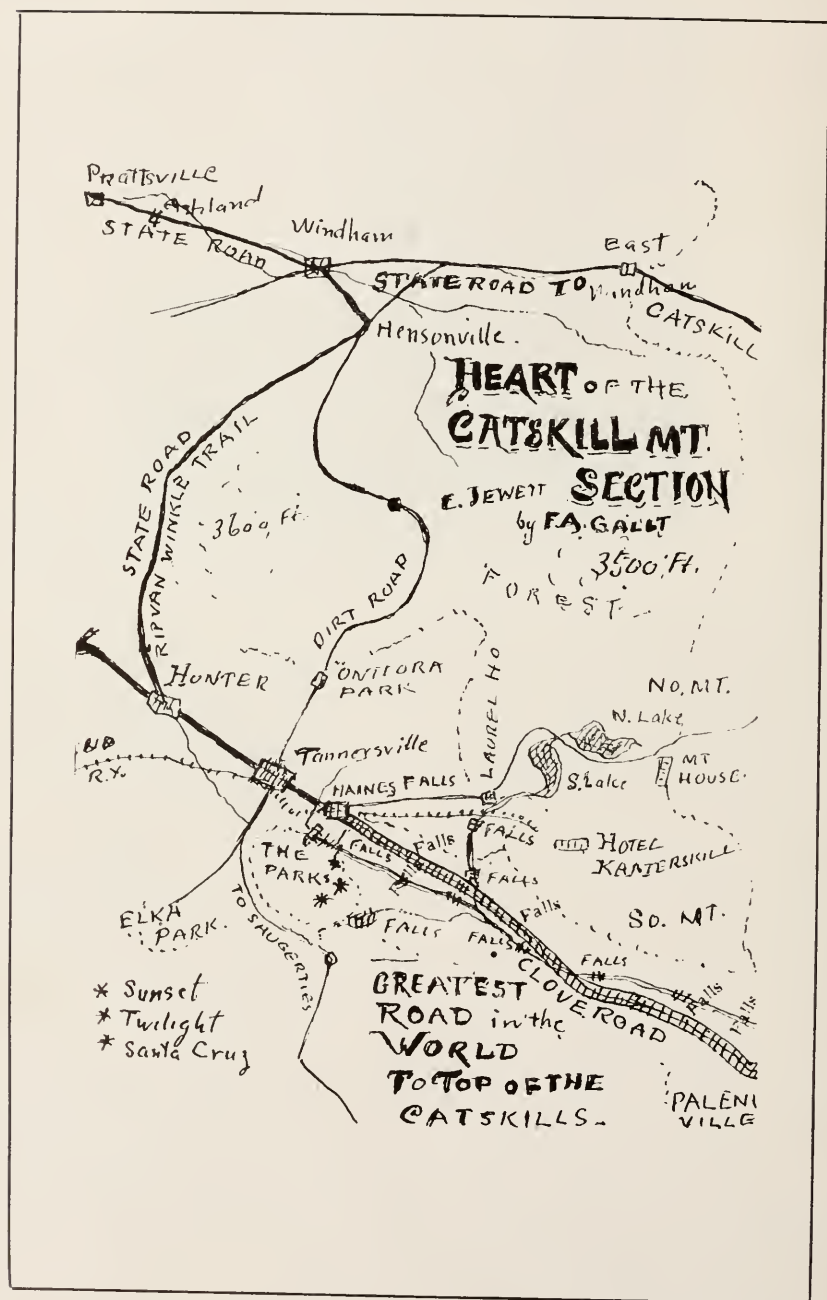 PrattsVille
Ashland
STATE ROAD
Windham
East
Windham
STATE ROAD TO
CATSKILL
Hensonville.
HEART OF THE
CATSKILL MT.
SECTION
by F.A. GALLT
E. JEWETT
3600 Ft.
3500 Ft.
FOREST
STATE ROAD
RIP VAN WINKLE TRAIL
DIRT ROAD
HUNTER
ONTIORA
PARK
LAUREL HO
NO. MT.
N. Lake
S. Lake
MT
HOUSE.
R.Y.
Tannersville
HAINES FALLS
FALLS
HOTEL
KANTERSKILL
THE
PARKS
FALLS
Falls
Falls
FALLS
Falls
SO. MT.
ELKA
PARK.
TO SAUGERTIES
FALLS
FALLS
FALLS
Falls
Falls
CLOVE ROAD
* Sunset
* Twilight
* Santa Cruz
GREATEST
ROAD in the
WORLD
TO TOP OF THE
CATSKILLS.
PALENI
VILLE